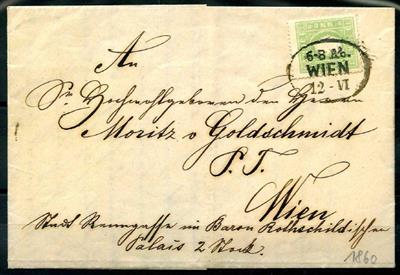 6-8 Ab.
WIEN
12-VI
An
Sr. Hochwohlgeboren den Herren
Moritz v Goldschmidt
P. T.
Wien
Stadt Renngasse im Baron Rothschildischen
Palais 2 Stock.
1860